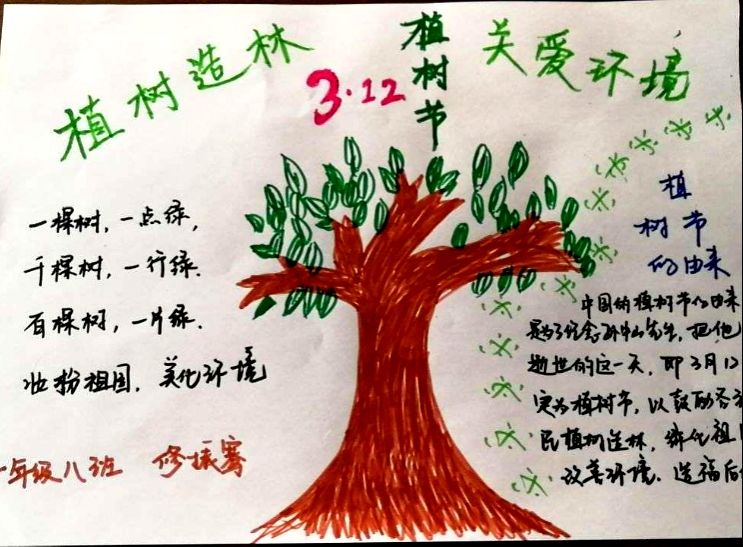 植树造林
3.12
植树节
关爱环境
一棵树，一点绿，
千棵树，一行绿.
百棵树，一片绿.
妆粉祖国，美化环境
年级八班 修振骞
植
树节
的由来
中国的植树节的由来
是为了纪念孙中山先生，把他
逝世的这一天，即3月12
定为植树节，以鼓励各
民植树造林，绿化祖
改善环境．造福后